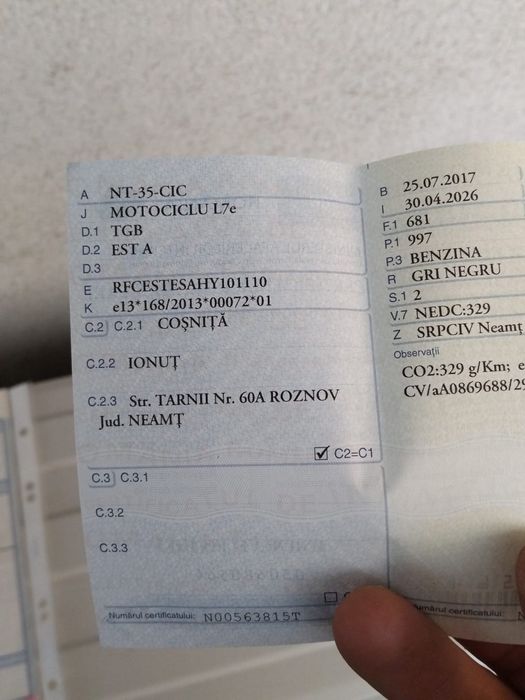 A NT-35-CIC
J MOTOCICLU L7e
D.1 TGB
D.2 EST A
D.3
E RFCESTESAHY101110
K e13*168/2013*00072*01
C.2 C.2.1 COȘNIȚĂ
C.2.2 IONUȚ
C.2.3 Str. TARNII Nr. 60A ROZNOV
Jud. NEAMȚ
C2=C1
C.3 C.3.1
C.3.2
C.3.3
Numărul certificatului: N00563815T
B 25.07.2017
I 30.04.2026
F.1 681
P.1 997
P.3 BENZINA
R GRI NEGRU
S.1 2
V.7 NEDC:329
Z SRPCIV Neamț
Observații
CO2:329 g/Km; e
CV/aA0869688/29
Numărul certificatului: N